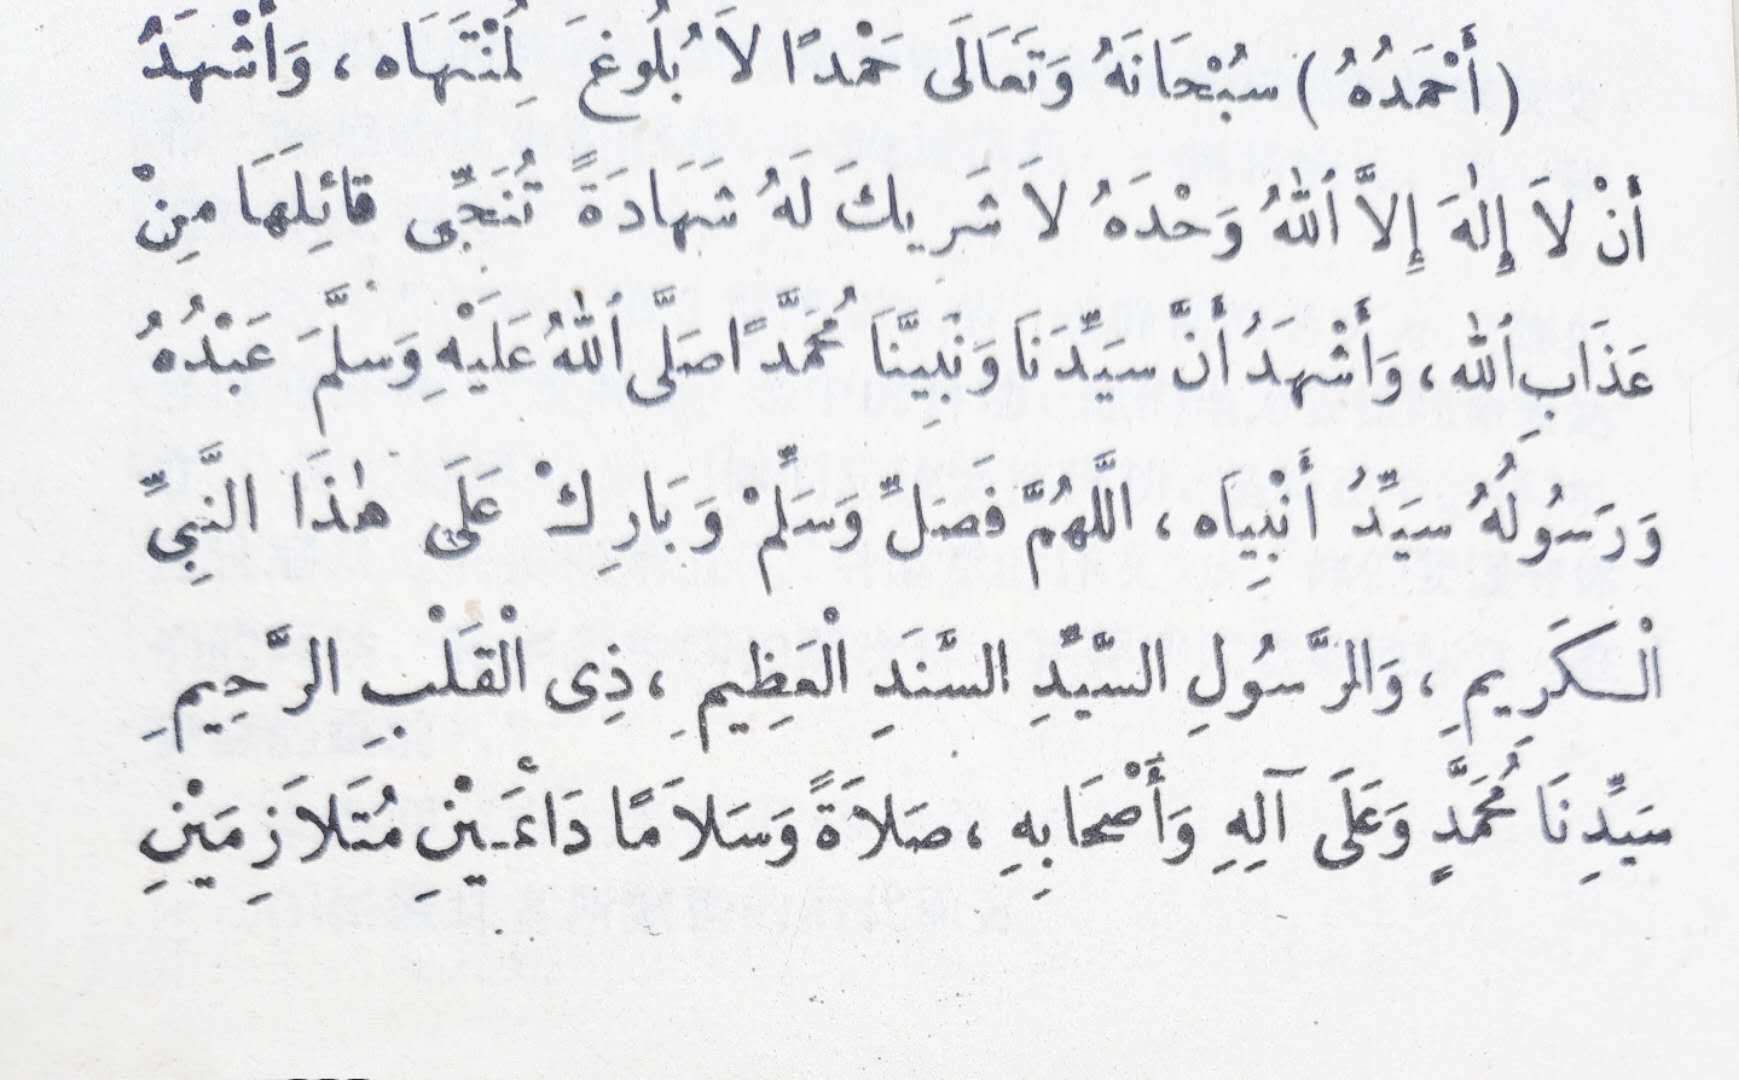 (أَحْمَدُهُ) سُبْحَانَهُ وَتَعَالَى حَمْدًا لاَ بُلُوغَ لِمُنْتَهَاه ، وَأَشْهَدُ
أَنْ لاَ إِلٰهَ إِلاَّ ٱللّٰهُ وَحْدَهُ لاَ شَرِيكَ لَهُ شَهَادَةً تُنَجِّى قائِلَهَا مِنْ
عَذَابِ ٱللّٰه ، وَأَشْهَدُ أَنَّ سَيِّدَنَا وَنَبِيَّنَا مُحَمَّدًا صَلَّى ٱللّٰهُ عَلَيْهِ وَسَلَّمَ عَبْدُهُ
وَرَسُولُهُ سَيِّدُ أَنْبِيَاه ، اللَّهُمَّ فَصَلِّ وَسَلِّمْ وَبَارِكْ عَلَى هٰذَا النَّبِيِّ
الْكَرِيمِ ، وَالرَّسُولِ السَّيِّدِ السَّنَدِ الْعَظِيمِ ، ذِى الْقَلْبِ الرَّحِيمِ
سَيِّدِنَا مُحَمَّدٍ وَعَلَى آلِهِ وَأَصْحَابِهِ ، صَلاَةً وَسَلاَمًا دَائمَيْنِ مُتَلاَزِمَيْنِ